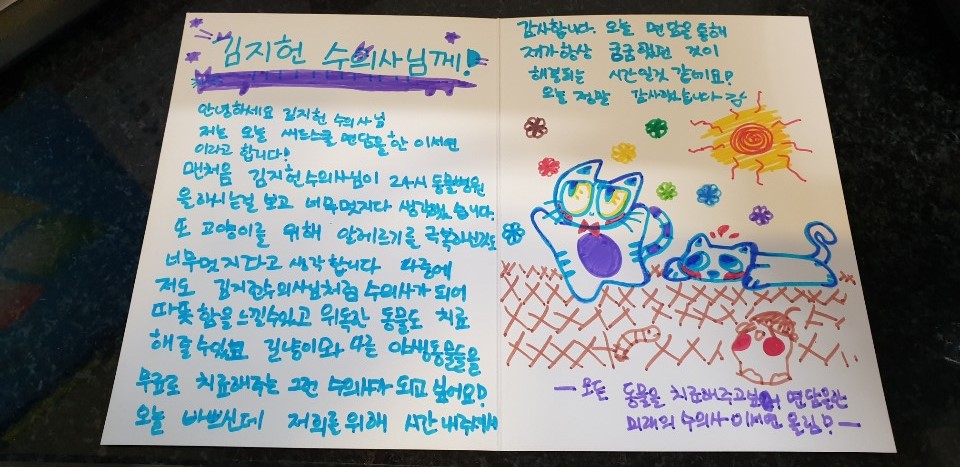 김지헌 수의사님께!
안녕하세요 김지헌 수의사님
저는 오늘 써드스쿨 면담을 한 이서연
이라고 합니다!
맨처음 김지헌수의사님이 24시 동물병원
을 하시는걸 보고 너무멋지다 생각했습니다.
또 고양이를 위해 알레르기를 극복하신것도
너무멋지다고 생각합니다 다음에
저도 김지헌수의사님처럼 수의사가 되어
따뜻함을 느낄수있고 위독한 동물도 치료
해줄수있고 길냥이와 다른 야생동물들을
무료로 치료해주는 그런 수의사가 되고싶어요?
오늘 바쁘신데 저희를 위해 시간내주셔서
감사합니다. 오늘 면담을 통해
제가항상 궁금했던 것이
해결되는 시간인것 같네요?
오늘 정말 감사했습니다
— 모든 동물을 치료해주고싶어 면담을한
미래의 수의사 이서연 올림? —